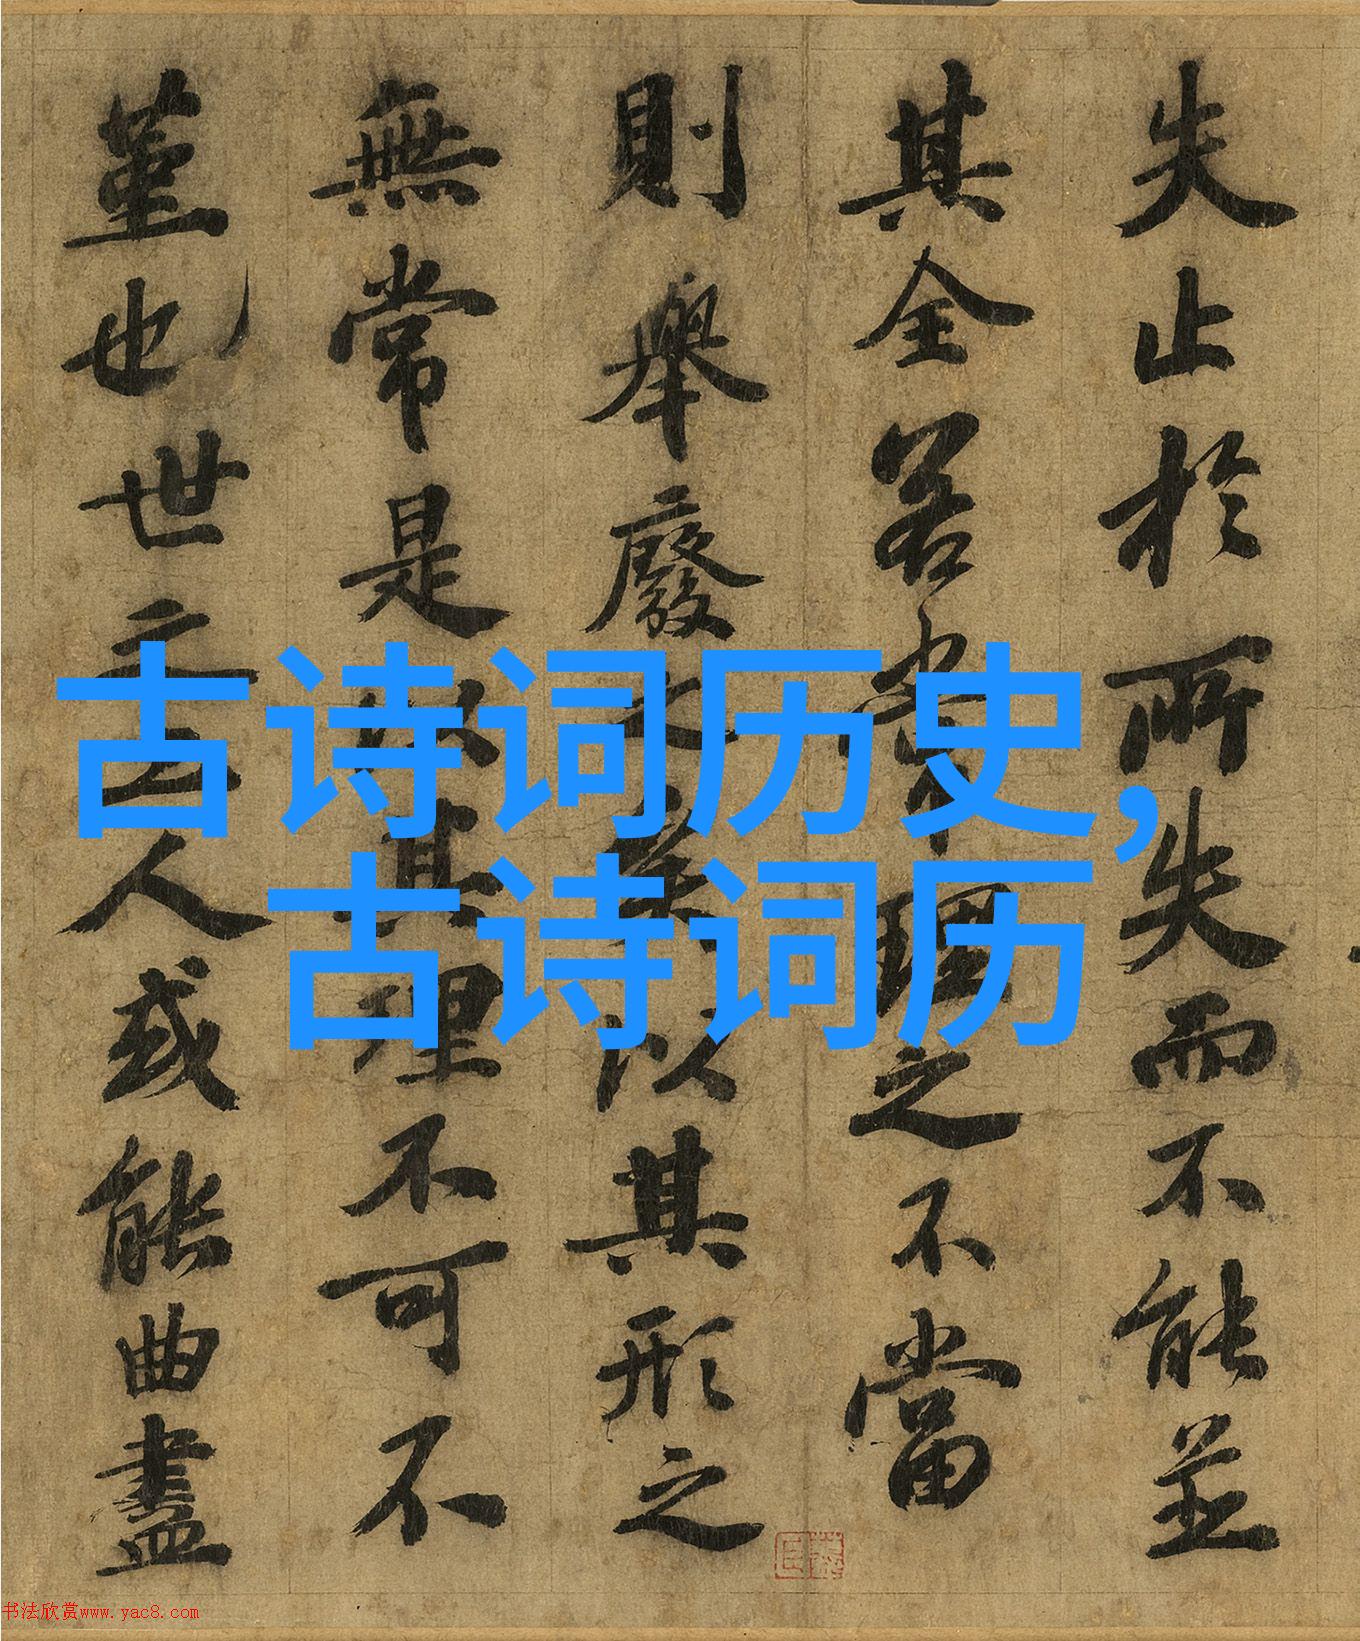 古诗词历史,
古诗词历
失止於所失而不能並
其全若常理之不當
則舉廢之矣以其形之
無常是以其理不可不
堇也世之工人或能曲盡
书法欣赏www.yac8.com